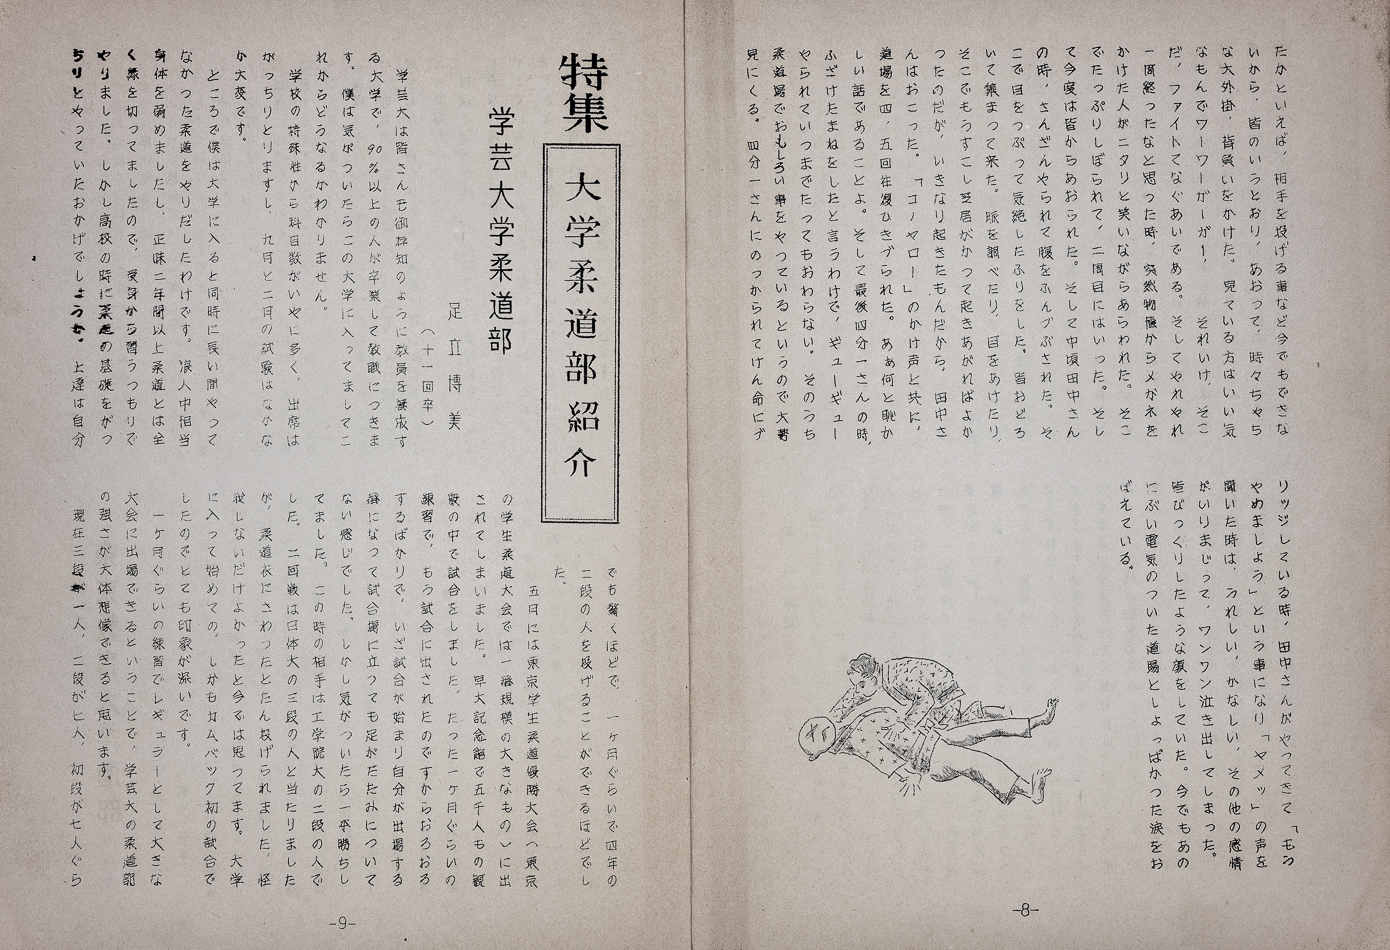 たかといえば、相手を投げる事など今でもできな
いから、皆のいうとおり、あおって、時々ちゃち
な大外掛、背負いをかけた。見ている方はいい気
なもんでワーワーガーガー、それいけ、そこ
だ、ファイトてなぐあいである。そしてやれやれ
一周終ったなと思った時、突然物陰からメガネを
かけた人がニタリと笑いながらあらわれた。そこ
でたっぷりしぼられて、二周目にはいった。そし
て今度は皆からあおられた。そして中頃田中さん
の時、さんざんやられて腹をふんづぶされた。そ
こで目をつぶって気絶したふりをした。皆おどろ
いて集まって来た。脈を調べたり、目をあけたり、
そこでもうすこし芝居がかって起きあがればよか
ったのだが、いきなり起きたもんだから、田中さ
んはおこった。「コノヤロー」のかけ声と共に、
道場を四、五回往復ひきづられた。あぁ何と恥か
しい話であることよ。そして最後四分一さんの時、
ふざけたまねをしたと言うわけで、ギューギュー
やられていつまでたってもおわらない。そのうち
柔道場でおもしろい事をやっているというので大勢
見にくる。四分一さんにのっかられてけん命にブ
リッジしている時、田中さんがやってきて「もう
やめましょう」という事になり「ヤメッ」の声を
聞いた時は、うれしい、かなしい、その他の感情
がいりまじって、ワンワン泣き出してしまった。
皆びっくりしたような顔をしていた。今でもあの
にぶい電気のついた道場としょっぱかった涙をお
ぼえている。
-8-
特集
大学柔道部紹介
学芸大学柔道部
足立博美
(十一回卒)
学芸大は皆さんも御存知のように教員を養成す
る大学で、90%以上の人が卒業して教職につきま
す。僕は気がついたらこの大学に入ってましてこ
れからどうなるかわかりません。
学校の特殊性から科目数がいやに多く、出席は
がっちりとりますし、九月と二月の試験はなかな
か大変です。
ところで僕は大学に入ると同時に長い間やって
なかった柔道をやりだしたわけです。浪人中相当
身体を弱めましたし、正味二年間以上柔道とは全
く縁を切ってましたので、受身から習うつもりで
やりました。しかし高校の時に柔道の基礎をがっ
ちりとやっていたおかげでしょうか。上達は自分
でも驚くほどで、一ヶ月ぐらいで四年の
二段の人を投げることができるほどでし
た。
五日には東京学生柔道優勝大会(東京
の学生柔道大会では一番規模の大きなもの)に出
されてしまいました。早大記念館で五千人もの観
衆の中で試合をしました。たった一ヶ月ぐらいの
練習で、もう試合に出されたのですからおろおろ
するばかりで、いざ試合が始まり自分が出場する
番になって試合場に立っても足がたたみについて
ない感じでした。しかし気がついたら一本勝ちし
てました。この時の相手は工学院大の二段の人で
した。二回戦は日体大の三段の人と当たりました
が、柔道衣にさわったとたん投げられました。怪
我しないだけよかったと今では思ってます。大学
に入って始めての、しかもカムバック初の試合で
したのでとても印象が深いです。
一ヶ月ぐらいの練習でレギュラーとして大きな
大会に出場できるということで、学芸大の柔道部
の強さが大体想像できると思います。
現在三段が一人、二段が七人、初段が七人ぐら
-9-